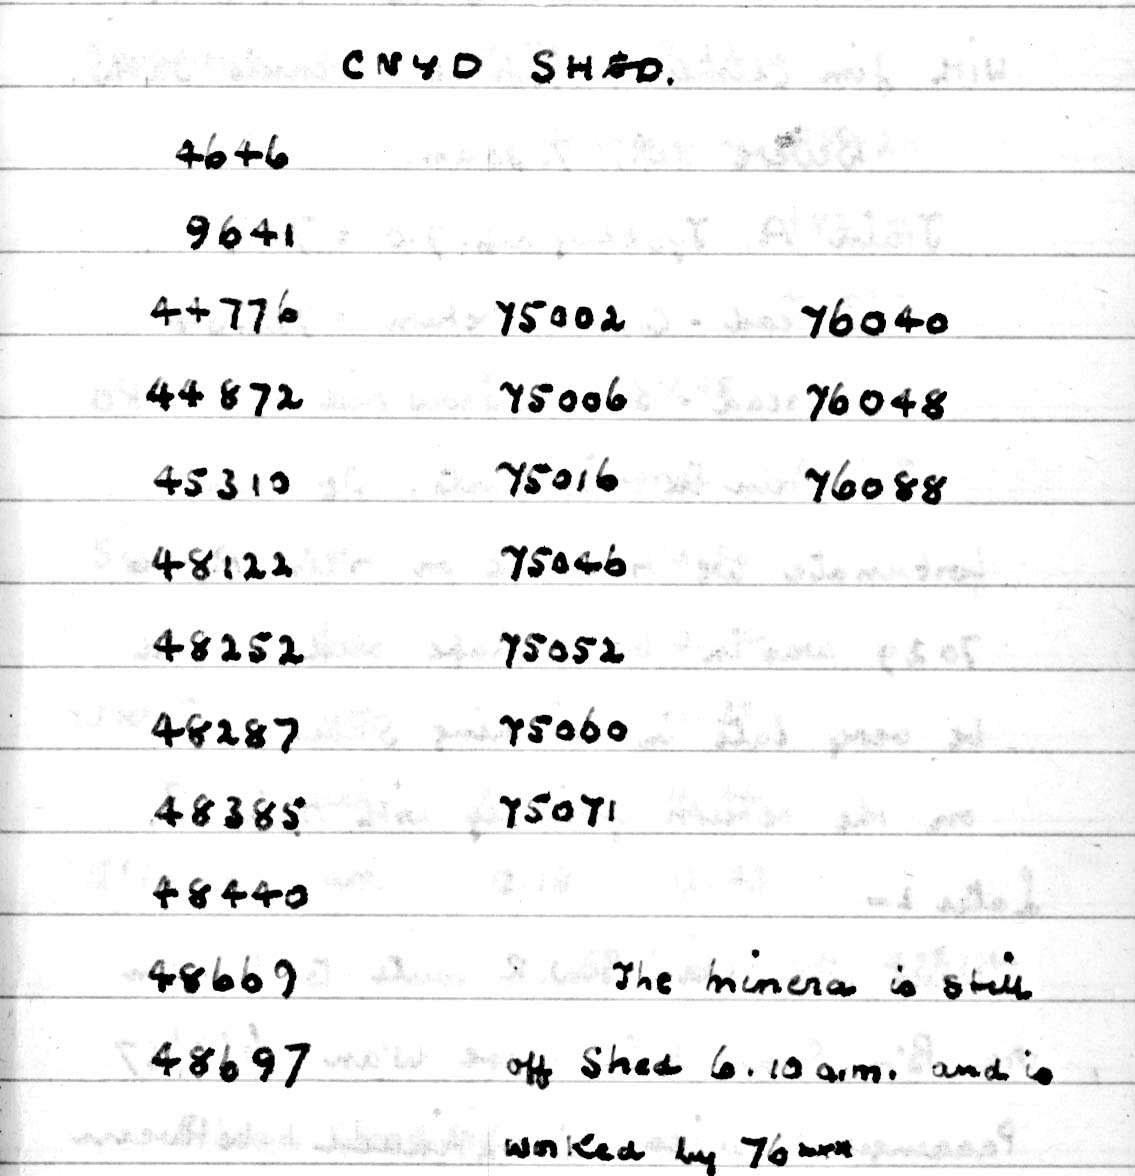 CNYD SHED.
4646
9641
44776 75002 76040
44872 75006 76048
45310 75016 76088
48122 75046
48252 75052
48287 75060
48385 75071
48440
48669 The Minera is still
48697 off Shed 6.10 a.m. and is
worked by 76xxx